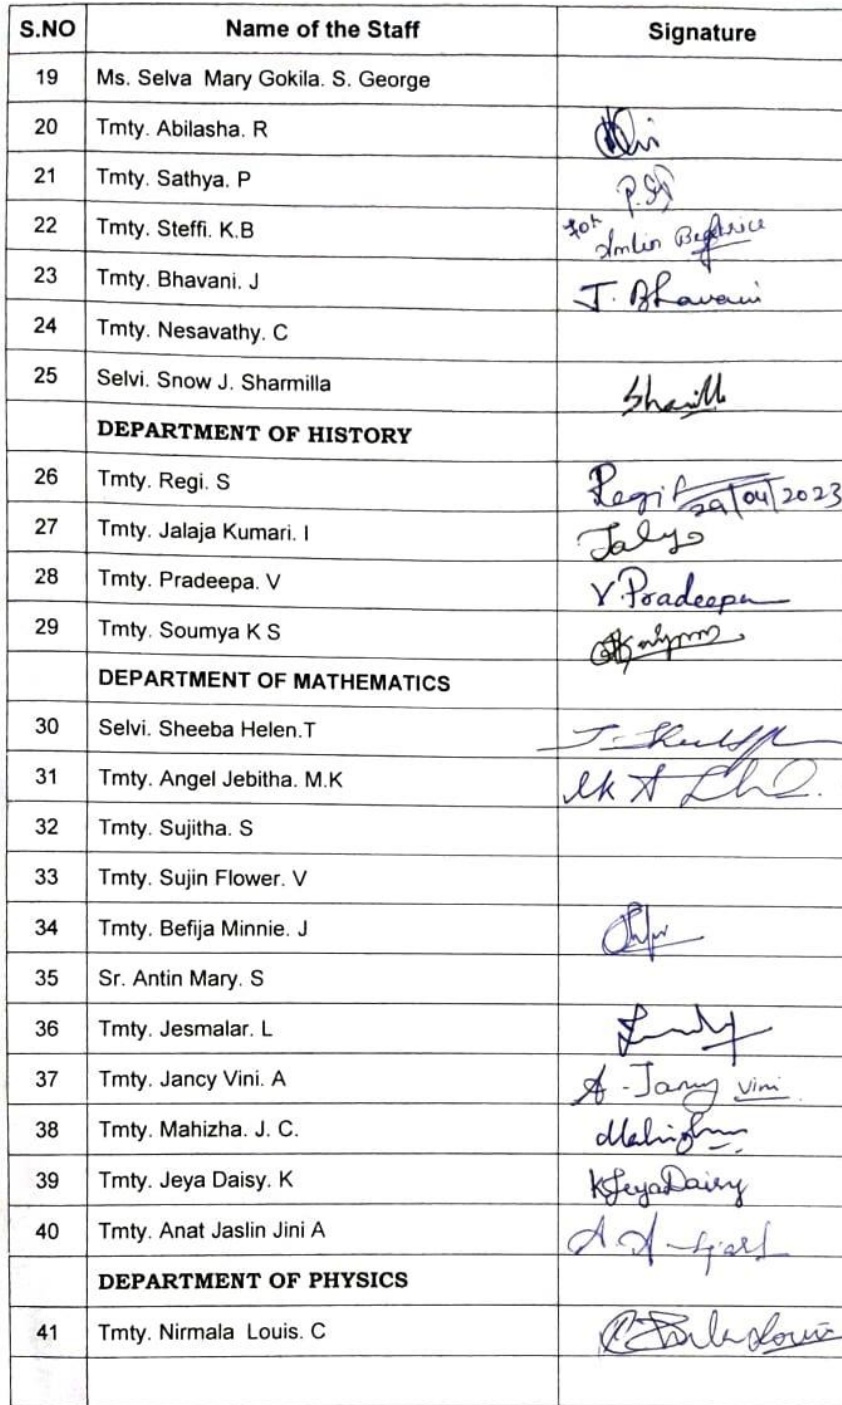 S.NO Name of the Staff Signature
19 Ms. Selva Mary Gokila. S. George
20 Tmty. Abilasha. R
21 Tmty. Sathya. P
22 Tmty. Steffi. K.B for
23 Tmty. Bhavani. J J. Bhavani
24 Tmty. Nesavathy. C
25 Selvi. Snow J. Sharmilla
DEPARTMENT OF HISTORY
26 Tmty. Regi. S Regi 29/04/2023
27 Tmty. Jalaja Kumari. I
28 Tmty. Pradeepa. V V. Pradeepa
29 Tmty. Soumya K S
DEPARTMENT OF MATHEMATICS
30 Selvi. Sheeba Helen.T
31 Tmty. Angel Jebitha. M.K
32 Tmty. Sujitha. S
33 Tmty. Sujin Flower. V
34 Tmty. Befija Minnie. J
35 Sr. Antin Mary. S
36 Tmty. Jesmalar. L
37 Tmty. Jancy Vini. A A. Jancy Vini
38 Tmty. Mahizha. J. C.
39 Tmty. Jeya Daisy. K K Jeya Daisy
40 Tmty. Anat Jaslin Jini A
DEPARTMENT OF PHYSICS
41 Tmty. Nirmala Louis. C